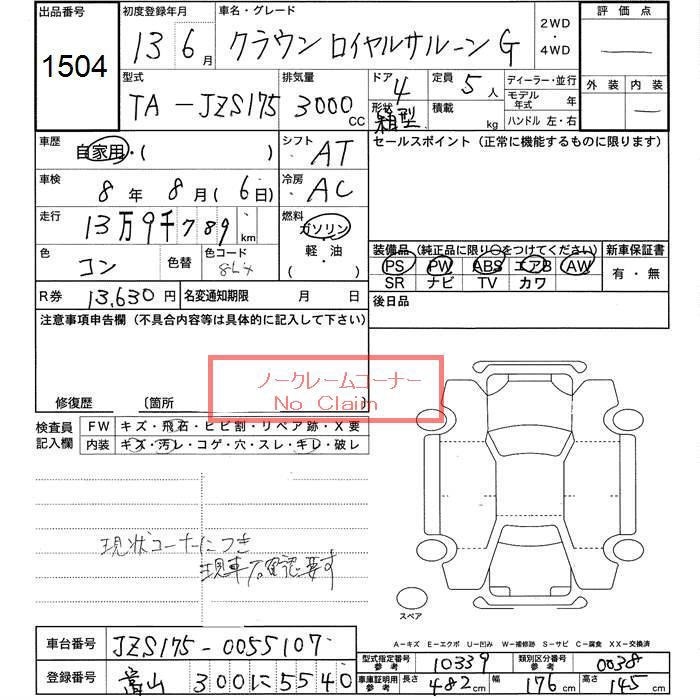 出品番号 初度登録年月 車名・グレード 2WD・4WD 評価点
1504 13 6月 クラウン ロイヤルサルーン G
型式 排気量 ドア 定員 ディーラー・並行 外装 内装
TA-JZS175 3000CC 4 5人 モデル年式 年
形状 箱型 積載 kg ハンドル 左・右
車歴 自家用・( ) シフト AT セールスポイント(正常に機能するものに限ります)
車検 8年 8月(6日) 冷房 AC
走行 13万9千789km 燃料 ガソリン・軽・油・( )
色 コン 色替 色コード 8L*
装備品(純正品に限り○をつけてください) 新車保証書
PS PW ABS エアB AW 有・無
SR ナビ TV カワ
R券 13,630円 名変通知期限 月 日 後日品
注意事項申告欄(不具合内容等は具体的に記入して下さい)
ノークレームコーナー
No Claim
修復歴 〔箇所
検査員記入欄 FW キズ・飛石・ヒビ割・リペア跡・X要
内装 キズ・汚レ・コゲ・穴・スレ・キレ・破レ
現状コーナーにつき
現車ご確認要す
スペア
A-キズ E-エクボ U-凹み W-補修跡 S-サビ C-腐食 XX-交換済
車台番号 JZS175-0055107
型式指定番号 参考 10339 類別区分番号 参考 0038
登録番号 富山 300に5540
車庫証明用参考 長さ 482cm 幅 176cm 高さ 145cm